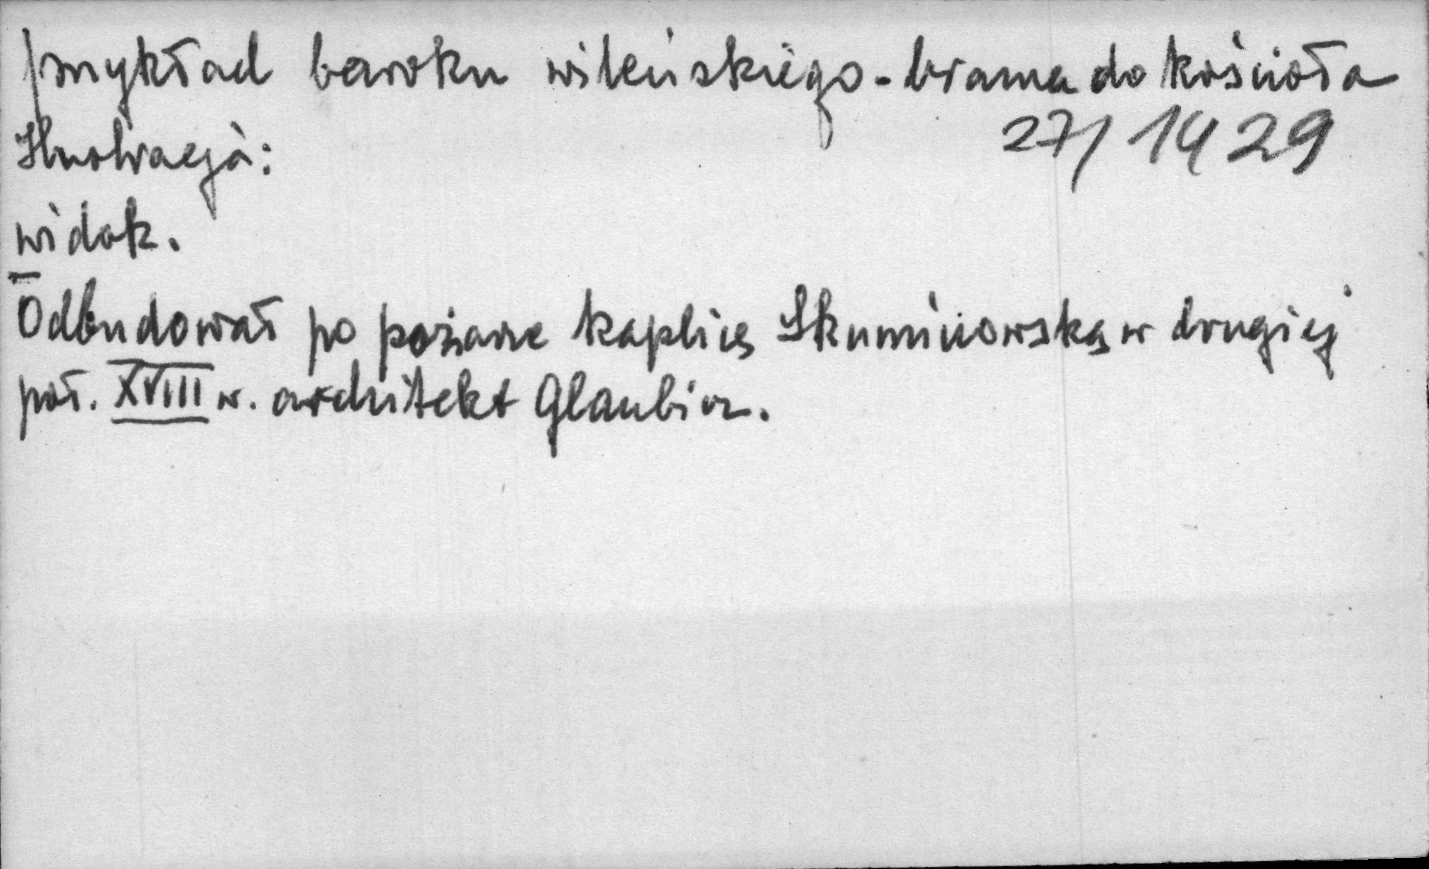 przykład baroku wileńskiego - brama do kościoła
Ilustracja:
27/1429
widok.
Odbudował po pożarze kaplicę Skuminowską w drugiej
poł. XVIII w. architekt Glaubicz.